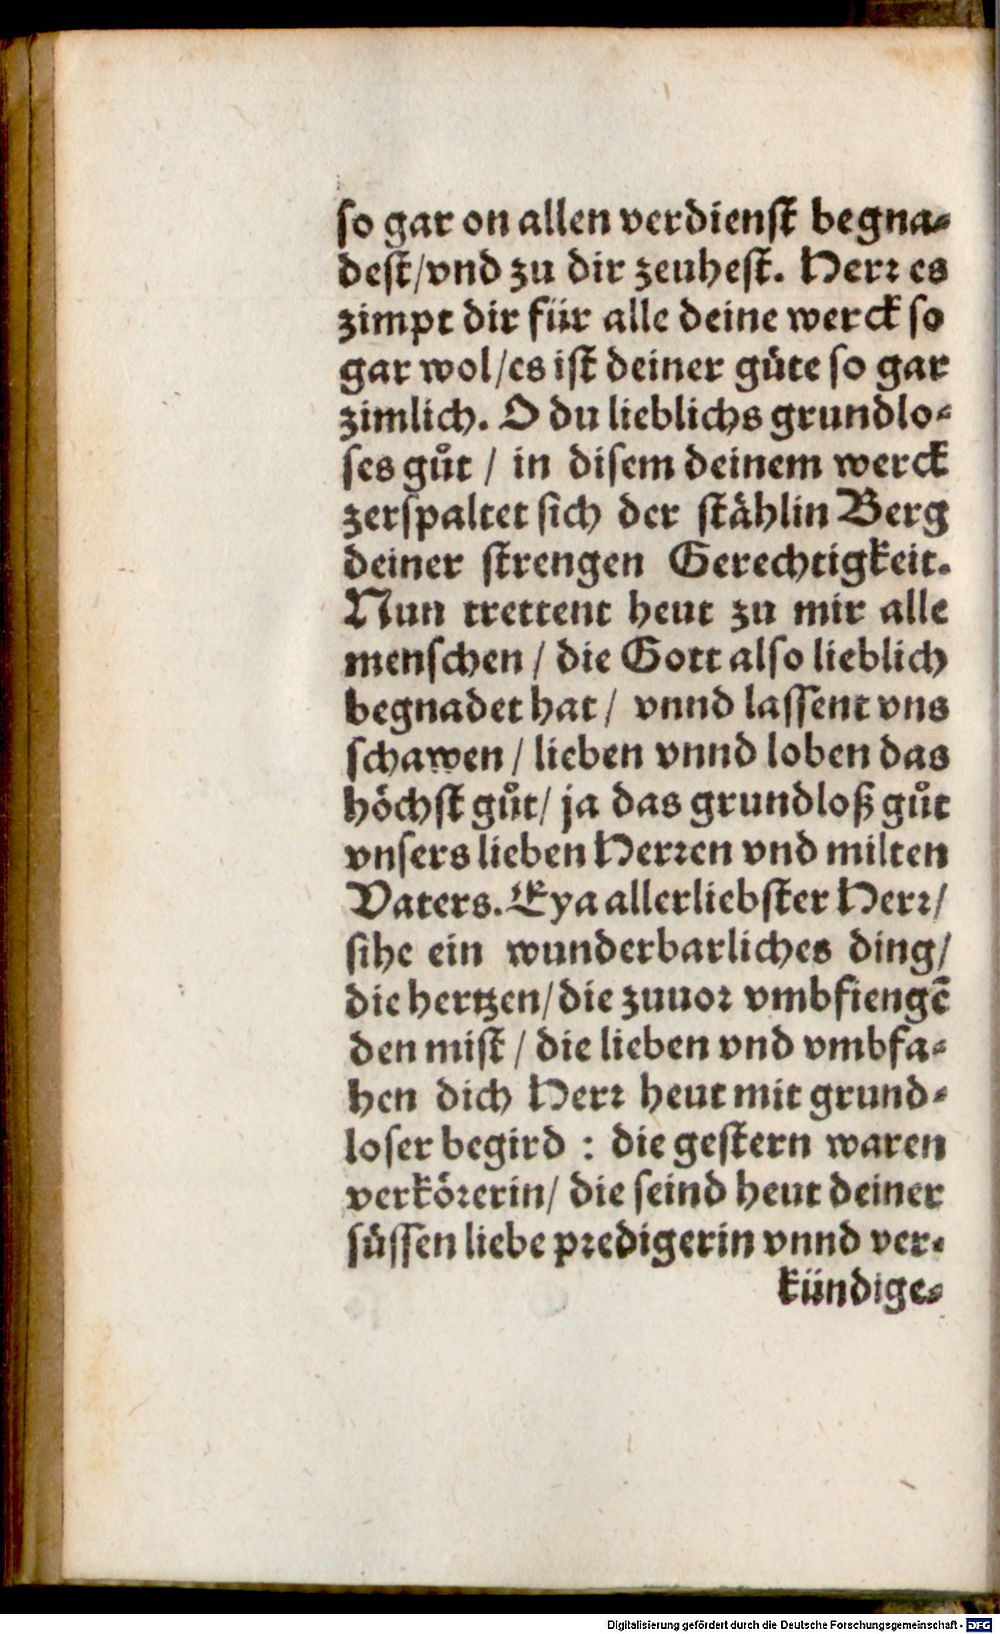 so gar on allen verdienst begna⸗
dest/vnd zu dir zeuhest. Herꝛ es
zimpt dir für alle deine werck so
gar wol/es ist deiner güte so gar
zimlich. O du lieblichs grundlo⸗
ses gůt / in disem deinem werck
zerspaltet sich der stählin Berg
deiner strengen Gerechtigkeit.
Nun trettent heut zu mir alle
menschen / die Gott also lieblich
begnadet hat / vnnd lassent vns
schawen / lieben vnnd loben das
höchst gůt/ ja das grundloß gůt
vnsers lieben Herꝛen vnd milten
Vaters. Eya allerliebster Herꝛ/
sihe ein wunderbarliches ding/
die hertzen/die zuuoꝛ vmbfiengē
den mist / die lieben vnd vmbfa⸗
hen dich Herꝛ heut mit grund⸗
loser begird : die gestern waren
verköꝛerin/ die seind heut deiner
süssen liebe pꝛedigerin vnnd ver⸗
kündige⸗
Digitalisierung gefördert durch die Deutsche Forschungsgemeinschaft - DFG